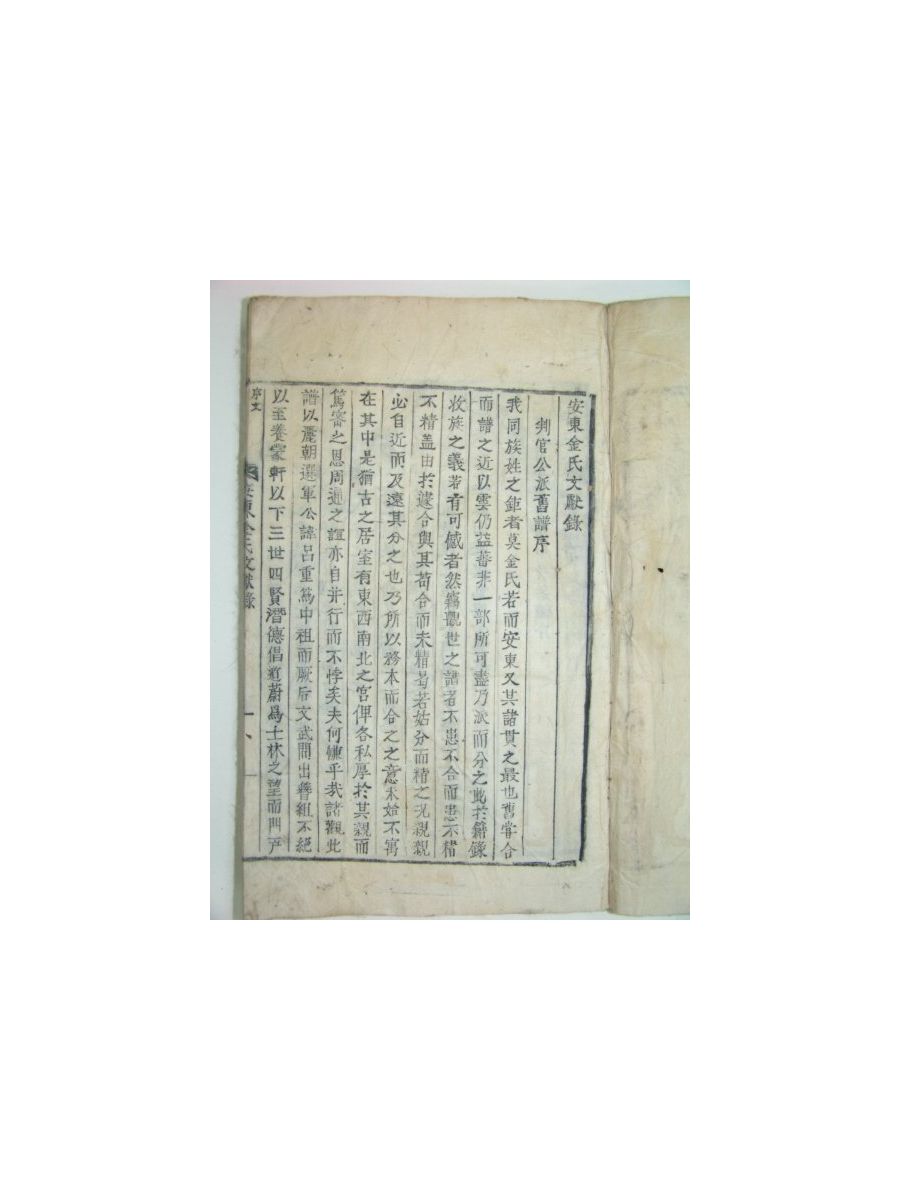 安東金氏文獻錄
判官公派舊譜序
我同族姓之鉅者莫金氏若而安東又其諸貫之最也舊嘗合
而譜之近以雲仍益蕃非一部所可盡乃派而分之此於籍錄
收族之義若有可憾者然竊觀世之譜者不患不合而患不精
不精盖由於遽合與其苟合而未精曷若姑分而精之况親親
必自近而及遠其分之也乃所以務本而合之之意未始不寓
在其中是猶古之居室有東西南北之宮俾各私厚於其親而
篤密之恩周通之誼亦自并行而不悖矣夫何慊乎哉諸觀此
譜以麗朝選軍公諱呂重爲中祖而厥后文武間出簪組不絕
以至養蒙軒以下三世四賢潛德倡道蔚爲士林之望而門戶
序文
安東金氏文獻錄
一